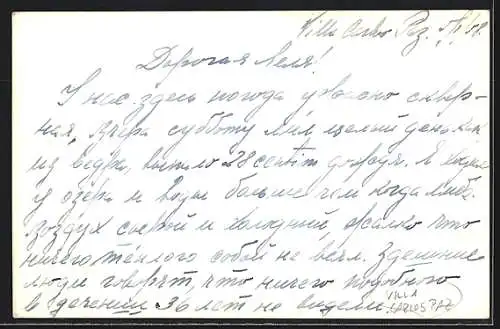 Villa Carlos Paz.
Дорогая Леля!
У нас здесь погода ужасно сквер-
ная, вчера субботу лил целый день как
из ведра, выпало 28 centim дождя. Я
у озера и воды больше чем когда либо.
воздух сырой и холодный, жалко что
ничего тёплого собой не взял. Здешние
люди говорят, что ничего подобного
в течении 36 лет не видели.
VILLA
CARLOS PAZ